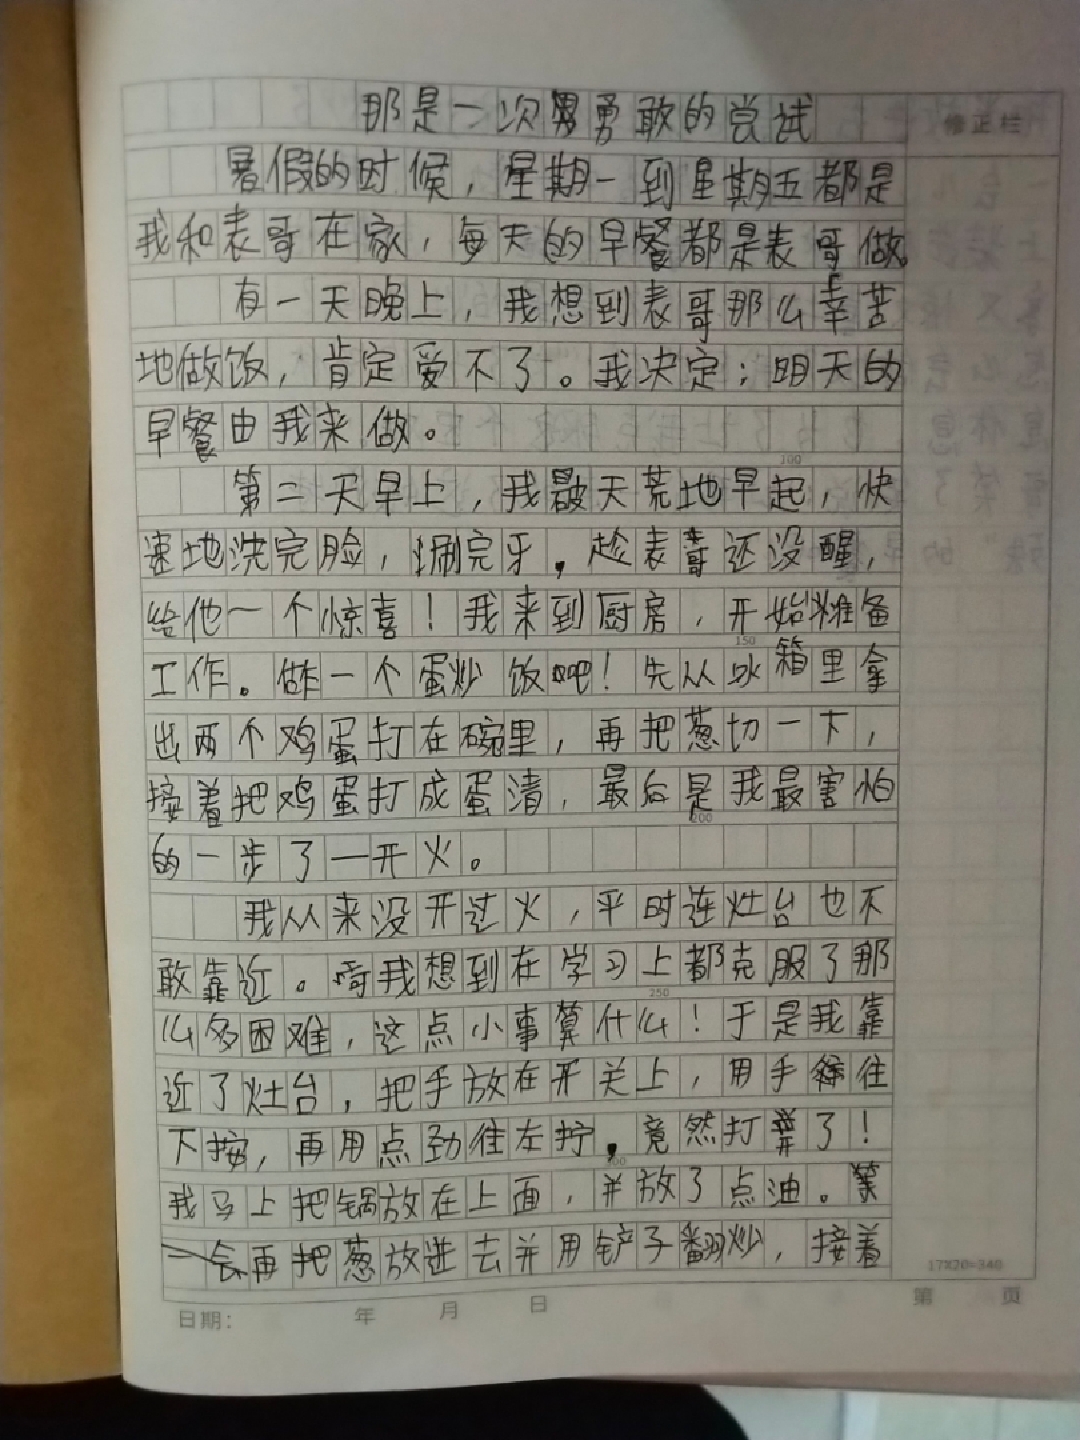 那是一次勇敢的尝试
修正栏
暑假的时候，星期一到星期五都是
我和表哥在家，每天的早餐都是表哥做
有一天晚上，我想到表哥那么辛苦
地做饭，肯定受不了。我决定：明天的
早餐由我来做。
第二天早上，我破天荒地早起，快
速地洗完脸，刷完牙，趁表哥还没醒，
给他一个惊喜！我来到厨房，开始准备
工作。做一个蛋炒饭吧！先从冰箱里拿
出两个鸡蛋打在碗里，再把葱切一下，
接着把鸡蛋打成蛋清，最后是我最害怕
的一步了—开火。
我从来没开过火，平时连灶台也不
敢靠近。可我想到在学习上都克服了那
么多困难，这点小事算什么！于是我靠
近了灶台，把手放在开关上，用手往
下按，再用点劲往左拧，竟然打着了！
我马上把锅放在上面，并放了点油。等
再把葱放进去并用铲子翻炒，接着
17×20=340
日期： 年 月 日 第 页
100
150
200
250
300